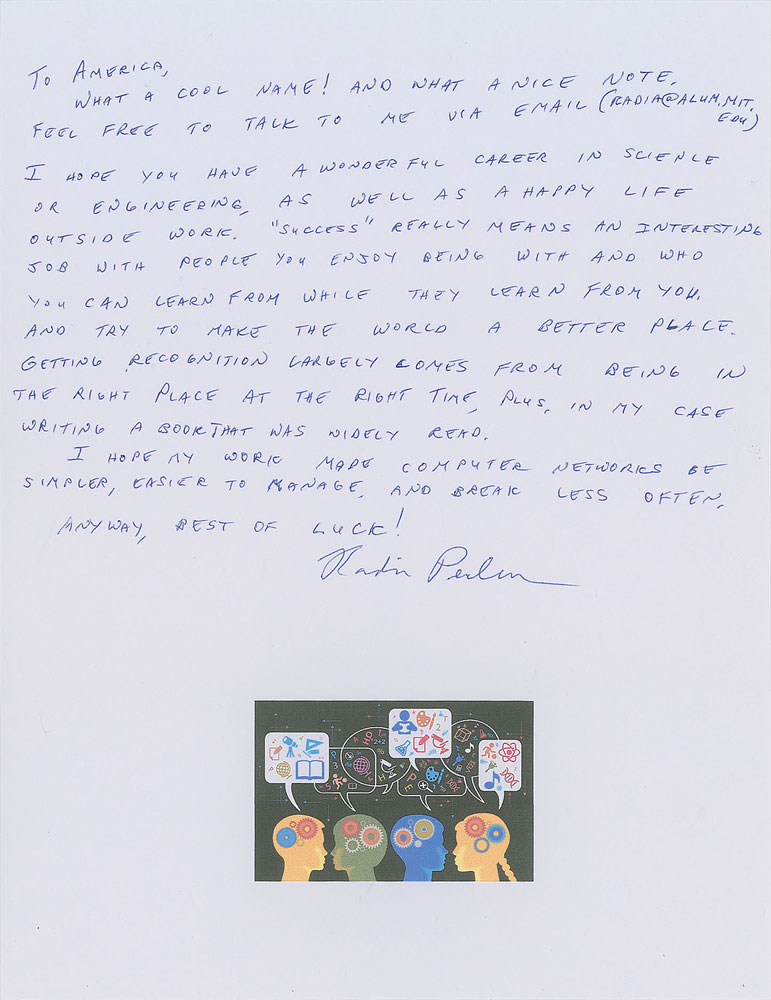 To America,
What a cool name! And what a nice note.
Feel free to talk to me via email (radia@alum.mit.
edu)
I hope you have a wonderful career in science
or engineering, as well as a happy life
outside work. "Success" really means an interesting
job with people you enjoy being with and who
you can learn from while they learn from you.
And try to make the world a better place.
Getting recognition largely comes from being in
the right place at the right time, plus, in my case
writing a book that was widely read.
I hope my work made computer networks be
simpler, easier to manage, and break less often.
Anyway, best of luck!
Radia Perlman